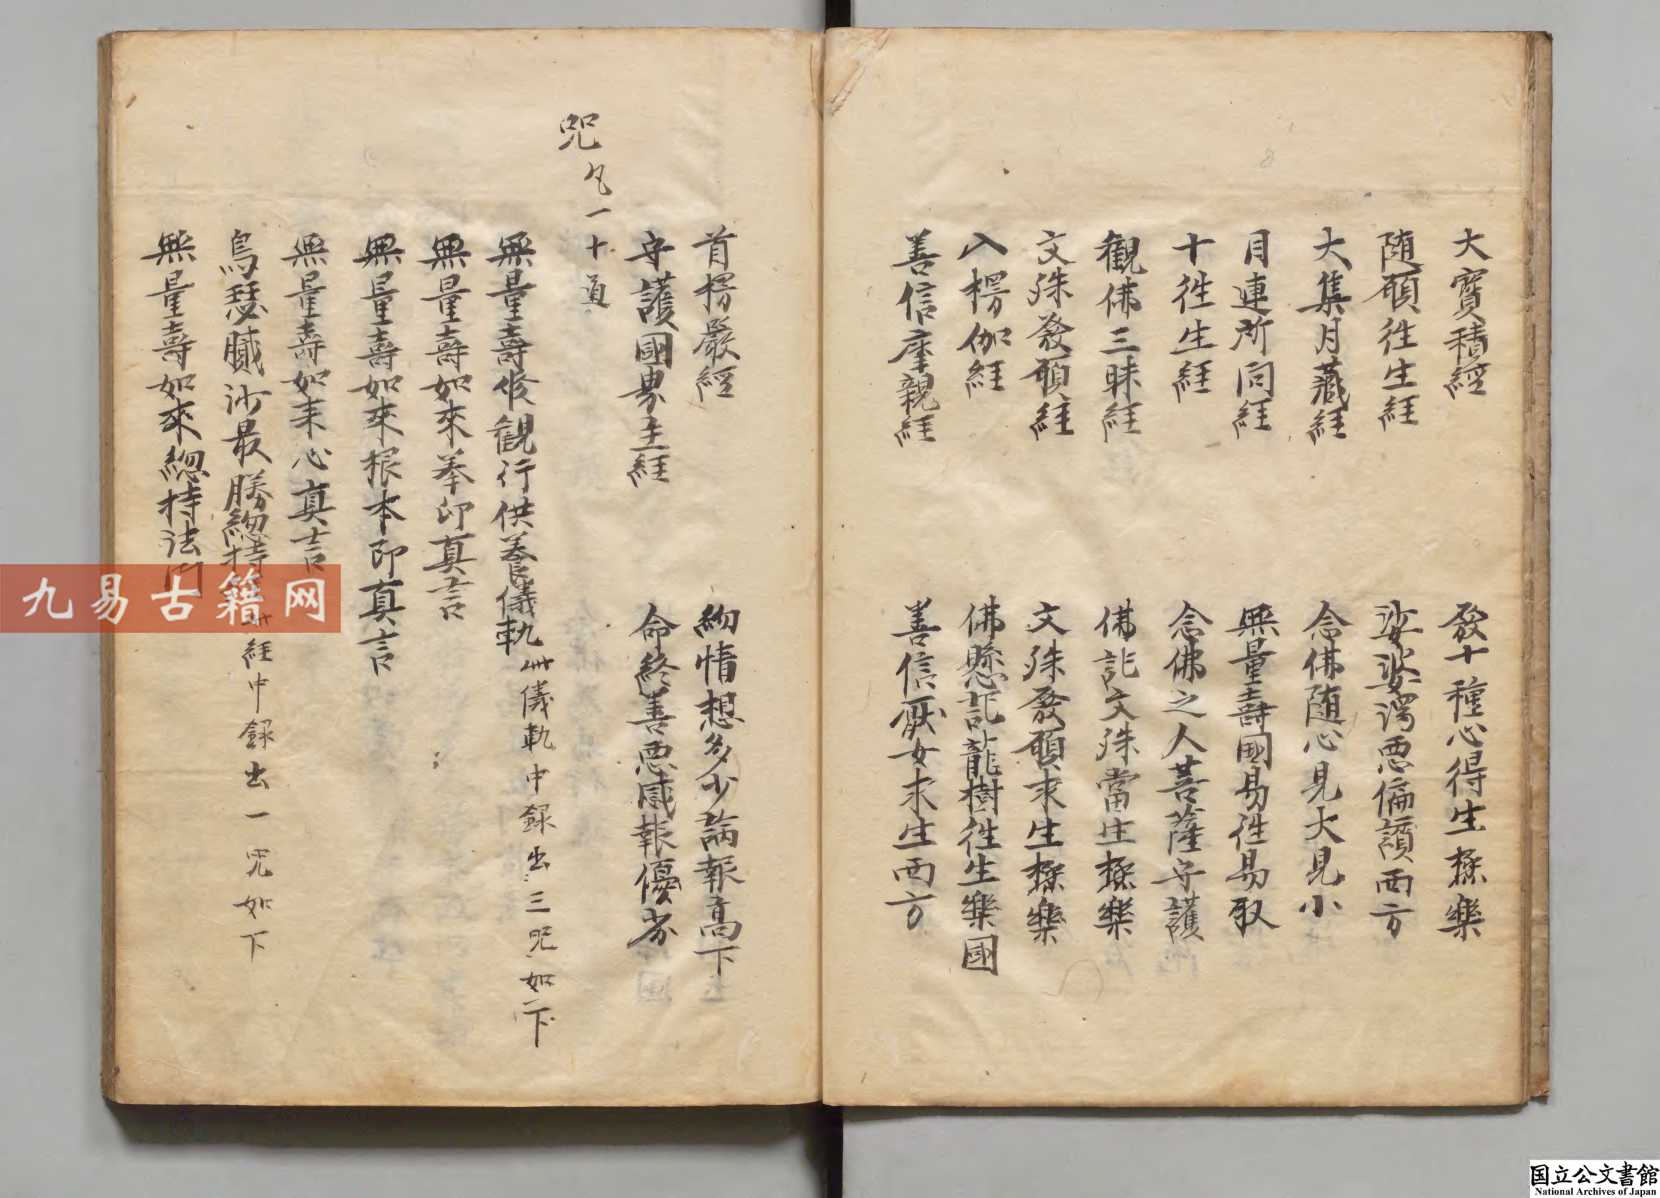 大寳積經　發十種心得生極樂
随願往生經　娑婆濁惡偏讃西方
大集月藏經　念佛随心見大見小
月連所问經　無量壽國易往易取
十往生經　念佛之人菩薩守護
觀佛三昧經　佛記文殊當生極樂
文殊發願經　文殊發願求生極樂
入楞伽經　佛懸記龍樹往生樂國
善信摩親經　善信厭女求生西方
首楞嚴經　紉情想多少論報高下
守護國界主經　命終善惡感報優劣
咒 凡一十道
無量壽修觀行供養儀軌 此儀軌中録出三咒如下
無量壽如來拳印真言
無量壽如來根本印真言
無量壽如来心真言
烏瑟膩沙最勝緫持 經中録出一咒如下
無量壽如來緫持法門
九易古籍网
国立公文書館
National Archives of Japan